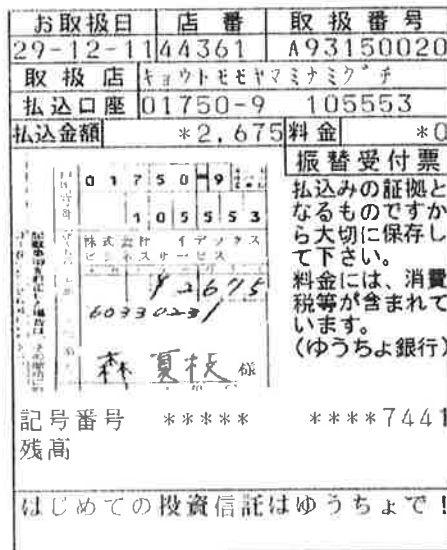 お取扱日 店番 取扱番号
29-12-11 44361 A93150020
取扱店 キョウトモモヤマミナミグチ
払込口座 01750-9 105553
払込金額 *2,675 料金 *0
振替受付票
払込みの証拠と
なるものですか
ら大切に保存し
て下さい。
料金には、消費
税等が含まれて
います。
(ゆうちょ銀行)
01750-9
105553
株式会社 イデックス
ビジネスサービス
¥2675
60330231
様
記号番号 ***** ****7441
残高
はじめての投資信託はゆうちょで!